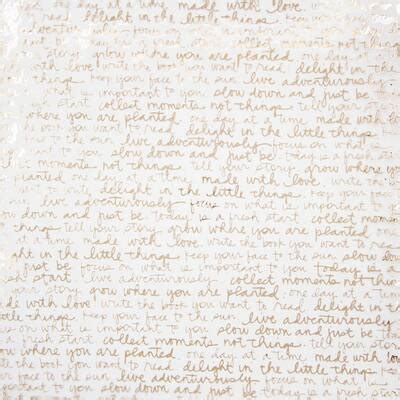 one day at a time made with love
delight in the little things. keep your
story grow where you are planted one day at
with love write the book you want to read delight in the
things. keep your face to the sun live adventurously
what is important to you slow down and just be
start collect moments not things tell your
where you are planted one day at a time made with
the book you want to read. delight in the little things
to the sun live adventurously focus on what
to you slow down and just be today is a fresh
moments not things. tell your story grow where yo
planted one day at made with love. write the
delight in the little things. keep your face
sun live adventurously focus on what is important
ow down and just be today is a fresh start collect momen
things tell your story grow where you are planted one day
at a time made with love write the book you want to rea
ght in the little things keep your face to the sun slow down
just be focus on what is important to you today is a
sh start live adventurously collect moments not thin
your story grow where you are planted. one day at a time
de with love write the book you want to read delight in
little things keep your face to the sun live adventurous
us on what is important to you slow down and just be to
a fresh start collect moments not things. tell your stor
ow where you are planted one day at a time made with
the book you want to read. delight in the little things
to the sun live adventurously focus on what is
portant to you slow down and just be today is a fresh start